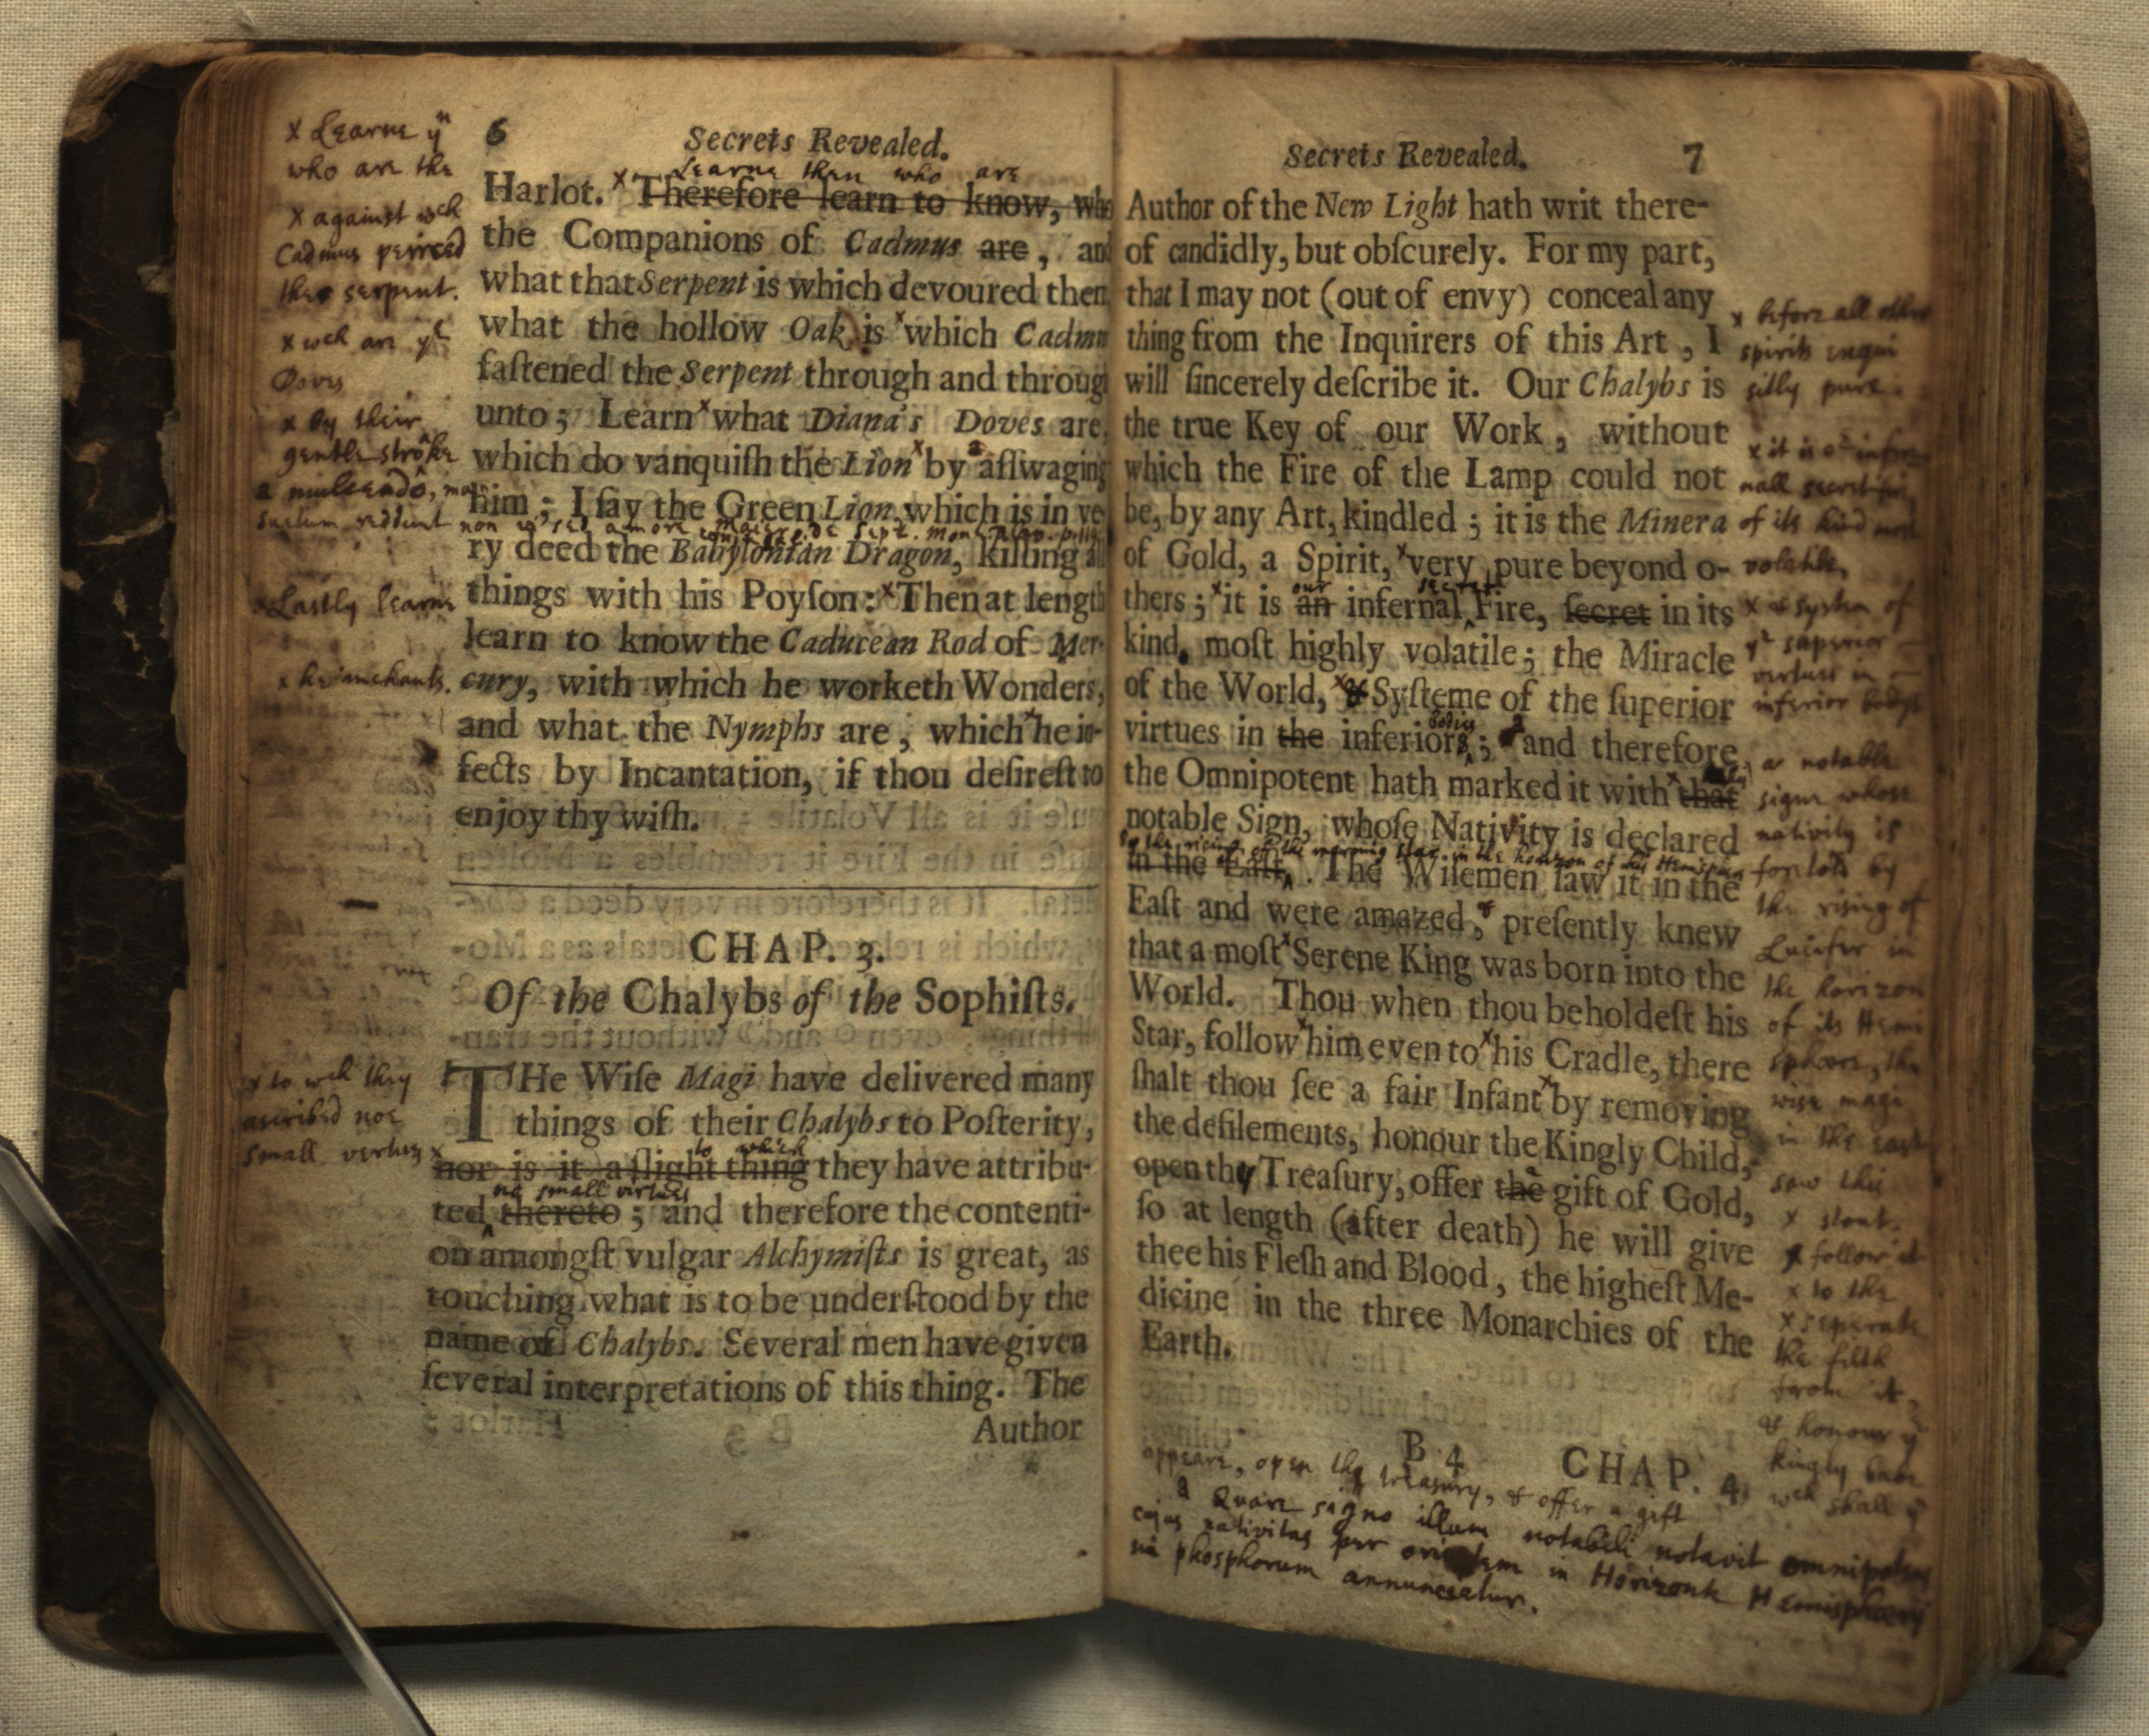 x Learne yn
who are the
x against wch
Cadmus peirced
the serpent.
x wch are ye
Doves
x by their
gentle stroke
a mulcendo,
x Lastly learne
x he inchants.
x to wch they
ascribed noe
small vertues
6 Secrets Revealed.
Learne then who are
Harlot. x Therefore learn to know, who
the Companions of Cadmus are, and
what that Serpent is which devoured them
what the hollow Oak is x which Cadmu
faſtened the Serpent through and throug
unto; Learn x what Diana's Doves are,
which do vanquiſh the Lion x by a aſſwaging
him; I ſay the Green Lion which is in ve
ry deed the Babylonian Dragon, killing all
things with his Poyſon: x Then at length
learn to know the Caducean Rod of Mer-
cury, with which he worketh Wonders,
and what the Nymphs are, which x he in-
fects by Incantation, if thou deſireſt to
enjoy thy wiſh.
CHAP. 3.
Of the Chalybs of the Sophiſts.
THe Wiſe Magi have delivered many
things of their Chalybs to Poſterity,
to which
x nor is it a ſlight thing they have attribu-
no small virtues
ted thereto; and therefore the contenti-
on amongſt vulgar Alchymiſts is great, as
touching what is to be underſtood by the
name of Chalybs. Several men have given
ſeveral interpretations of this thing. The
Author
Secrets Revealed. 7
Author of the New Light hath writ there-
of candidly, but obſcurely. For my part,
that I may not (out of envy) conceal any
thing from the Inquirers of this Art, I
will ſincerely deſcribe it. Our Chalybs is
the true Key of our Work, without
which the Fire of the Lamp could not
be, by any Art, kindled; it is the Minera
of Gold, a Spirit, x very pure beyond o-
our secret
thers; x it is an infernal Fire, ſecret in its
kind, moſt highly volatile; the Miracle
of the World, x & Syſteme of the ſuperior
bodies
virtues in the inferiors; a and therefore
the Omnipotent hath marked it with x that
notable Sign, whoſe Nativity is declared
by the rising of the morning star in the horizon of his Hemisphere
in the Eaſt. The Wiſemen ſaw it in the
Eaſt and were amazed, & preſently knew
that a moſt x Serene King was born into the
World. Thou when thou beholdeſt his
Star, follow x him even to x his Cradle, there
ſhalt thou ſee a fair Infant x by removing
the defilements, honour the Kingly Child,
open thy Treaſury, offer the gift of Gold,
a
ſo at length (after death) he will give
thee his Fleſh and Blood, the higheſt Me-
dicine in the three Monarchies of the
Earth.
B 4 CHAP. 4.
x before all other
spirits exqui
sitly pure.
x it is or infer
nall secret fire
of its kind most
volatile,
x a system of
ye superior
vertues in
inferior bodys
a notable
signe whose
nativity is
foretold by
the rising of
Lucifer in
the horizon
of its Hemi
sphere, the
wise magi
in the east
saw this
x stout.
x follow it
x to the
x separate
the filth
from it,
& honour ye
kingly babe
wch shall yn
appeare, open thy treasury, & offer a gift
a Quare signo illum notabili notavit omnipotens
cujus nativitas per orientem in Horizonte Hemisphaerij
sui phosphorum annunciatur.